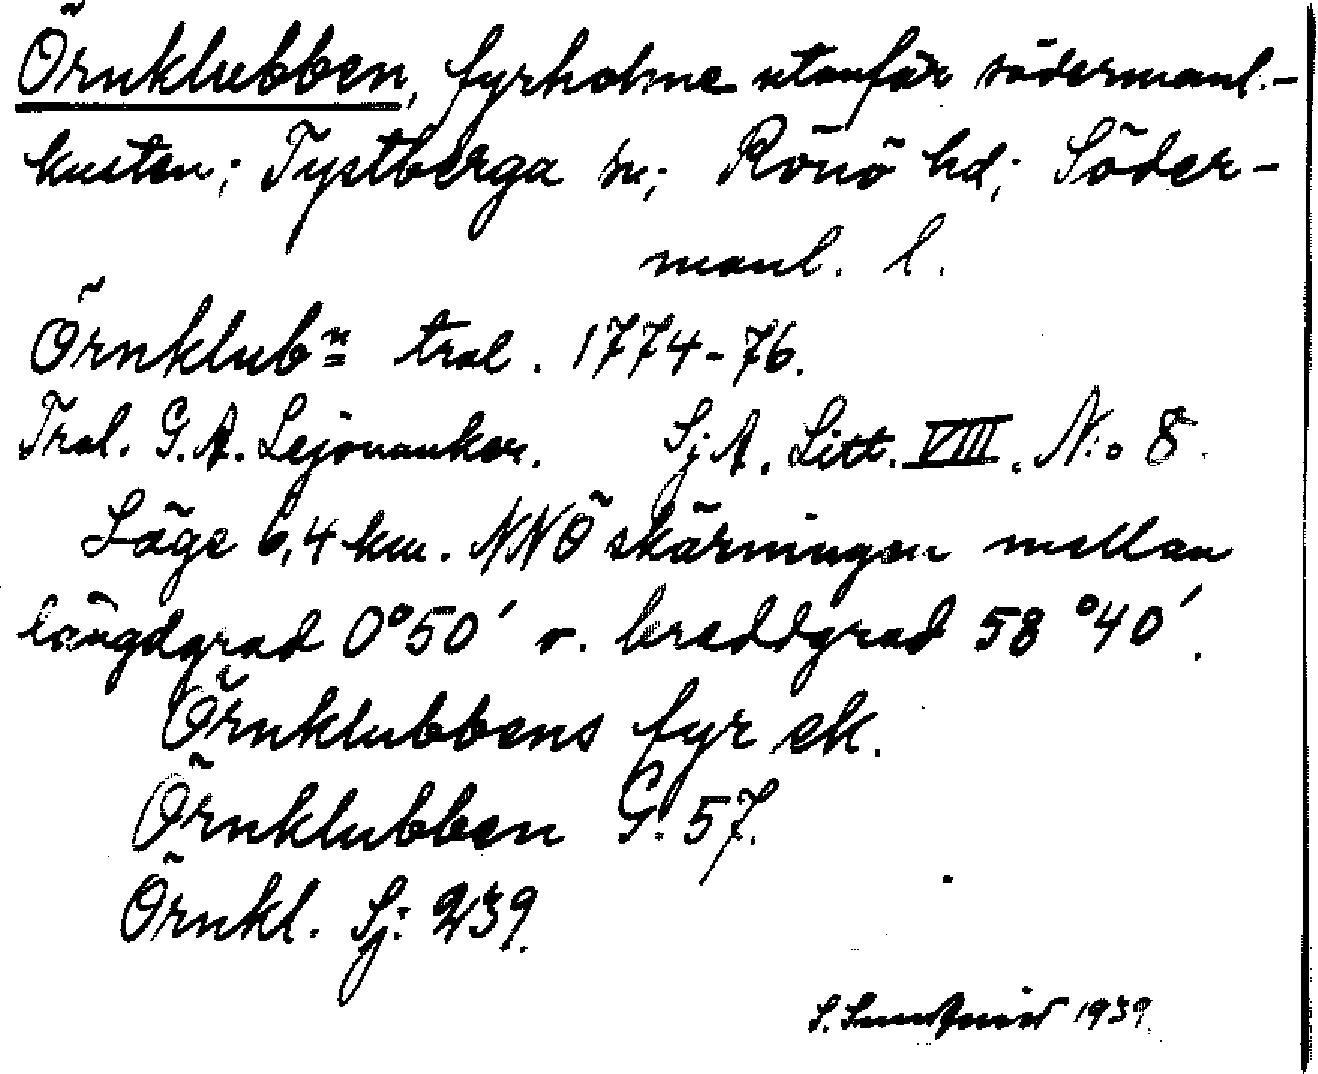 Örnklubben, fyrholme utanför södermanl.-
kusten; Tystberga sn; Rönö hd; Söder-
manl. l.
Örnklubn tral. 1774-76.
Tral. G. A. Lejonanker. Sj A. Litt. VIII. N:o 8.
Läge 6,4 km. NNÖ skärningen mellan
längdgrad 0°50' o. breddgrad 58°40'.
Örnklubbens fyr ek.
Örnklubben G: 57.
Örnkl. Sj: 239.
S. Sundqvist 1939